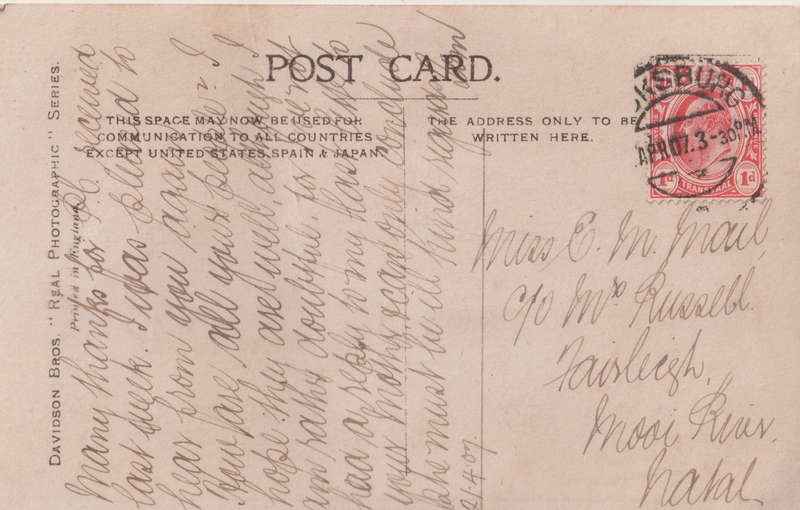 POST CARD.
THIS SPACE MAY NOW BE USED FOR
COMMUNICATION TO ALL COUNTRIES
EXCEPT UNITED STATES, SPAIN & JAPAN.
THE ADDRESS ONLY TO BE
WRITTEN HERE.
DAVIDSON BROS. "REAL PHOTOGRAPHIC" SERIES.
Printed in England.
KSBURG
APR 07. 3-30PM
1d 1d
TRANSVAAL
Many thanks for P.C. received
last week. I was pleased to
hear from you again.
How are all your people? I
hope they are well, although I
am rather doubtful, for I haven't
had a reply to my last two to
your mother, so can only conclude
she must be ill. Kind regards from
2/4/07
Miss E. M. Mail,
c/o Mrs Russell.
Fairleigh,
Mooi River.
Natal